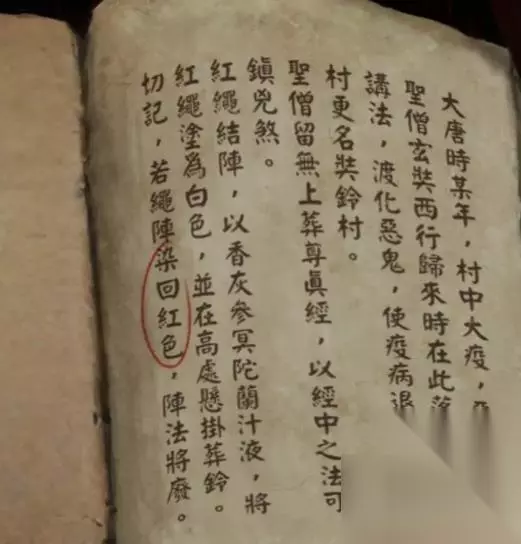 大唐時某年，村中大疫，
聖僧玄奘西行歸來時在此
講法，渡化惡鬼，使疫病退
村更名奘鈴村。
聖僧留無上葬尊真經，以經中之法可
鎮兇煞。
紅繩結陣，以香灰參冥陀蘭汁液，將
紅繩塗爲白色，並在高處懸掛葬鈴。
切記，若繩陣染回紅色，陣法將廢。